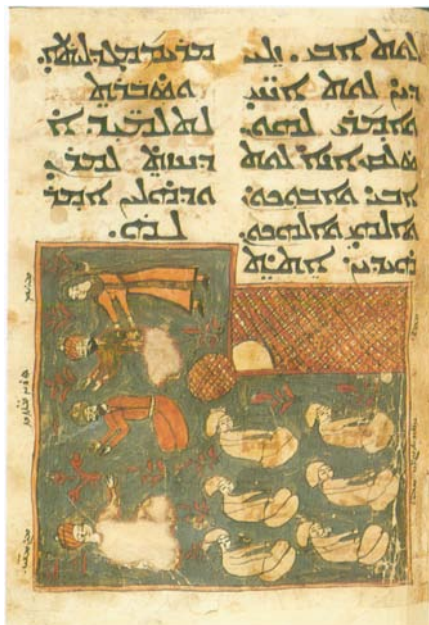 ܠܘܬ ܐܒܝ. ܙܠܝ
ܕܝܢ ܠܘܬ ܐܚܝ
ܘܐܡܪܝ ܠܗܘܢ.
ܣܠܩ ܐܢܐ ܠܘܬ
ܐܒܝ ܘܐܒܘܟܘܢ
ܘܐܠܗܝ ܘܐܠܗܟܘܢ.
ܗܝܕܝܢ ܐܬܬ
ܡܪܝܡ ܡܓܕܠܝܬܐ.
ܘܣܒܪܬ
ܠܬܠܡܝܕܐ
ܕܚܙܬ ܠܡܪܢ
ܘܕܗܠܝܢ ܐܡܪ
ܠܗ.